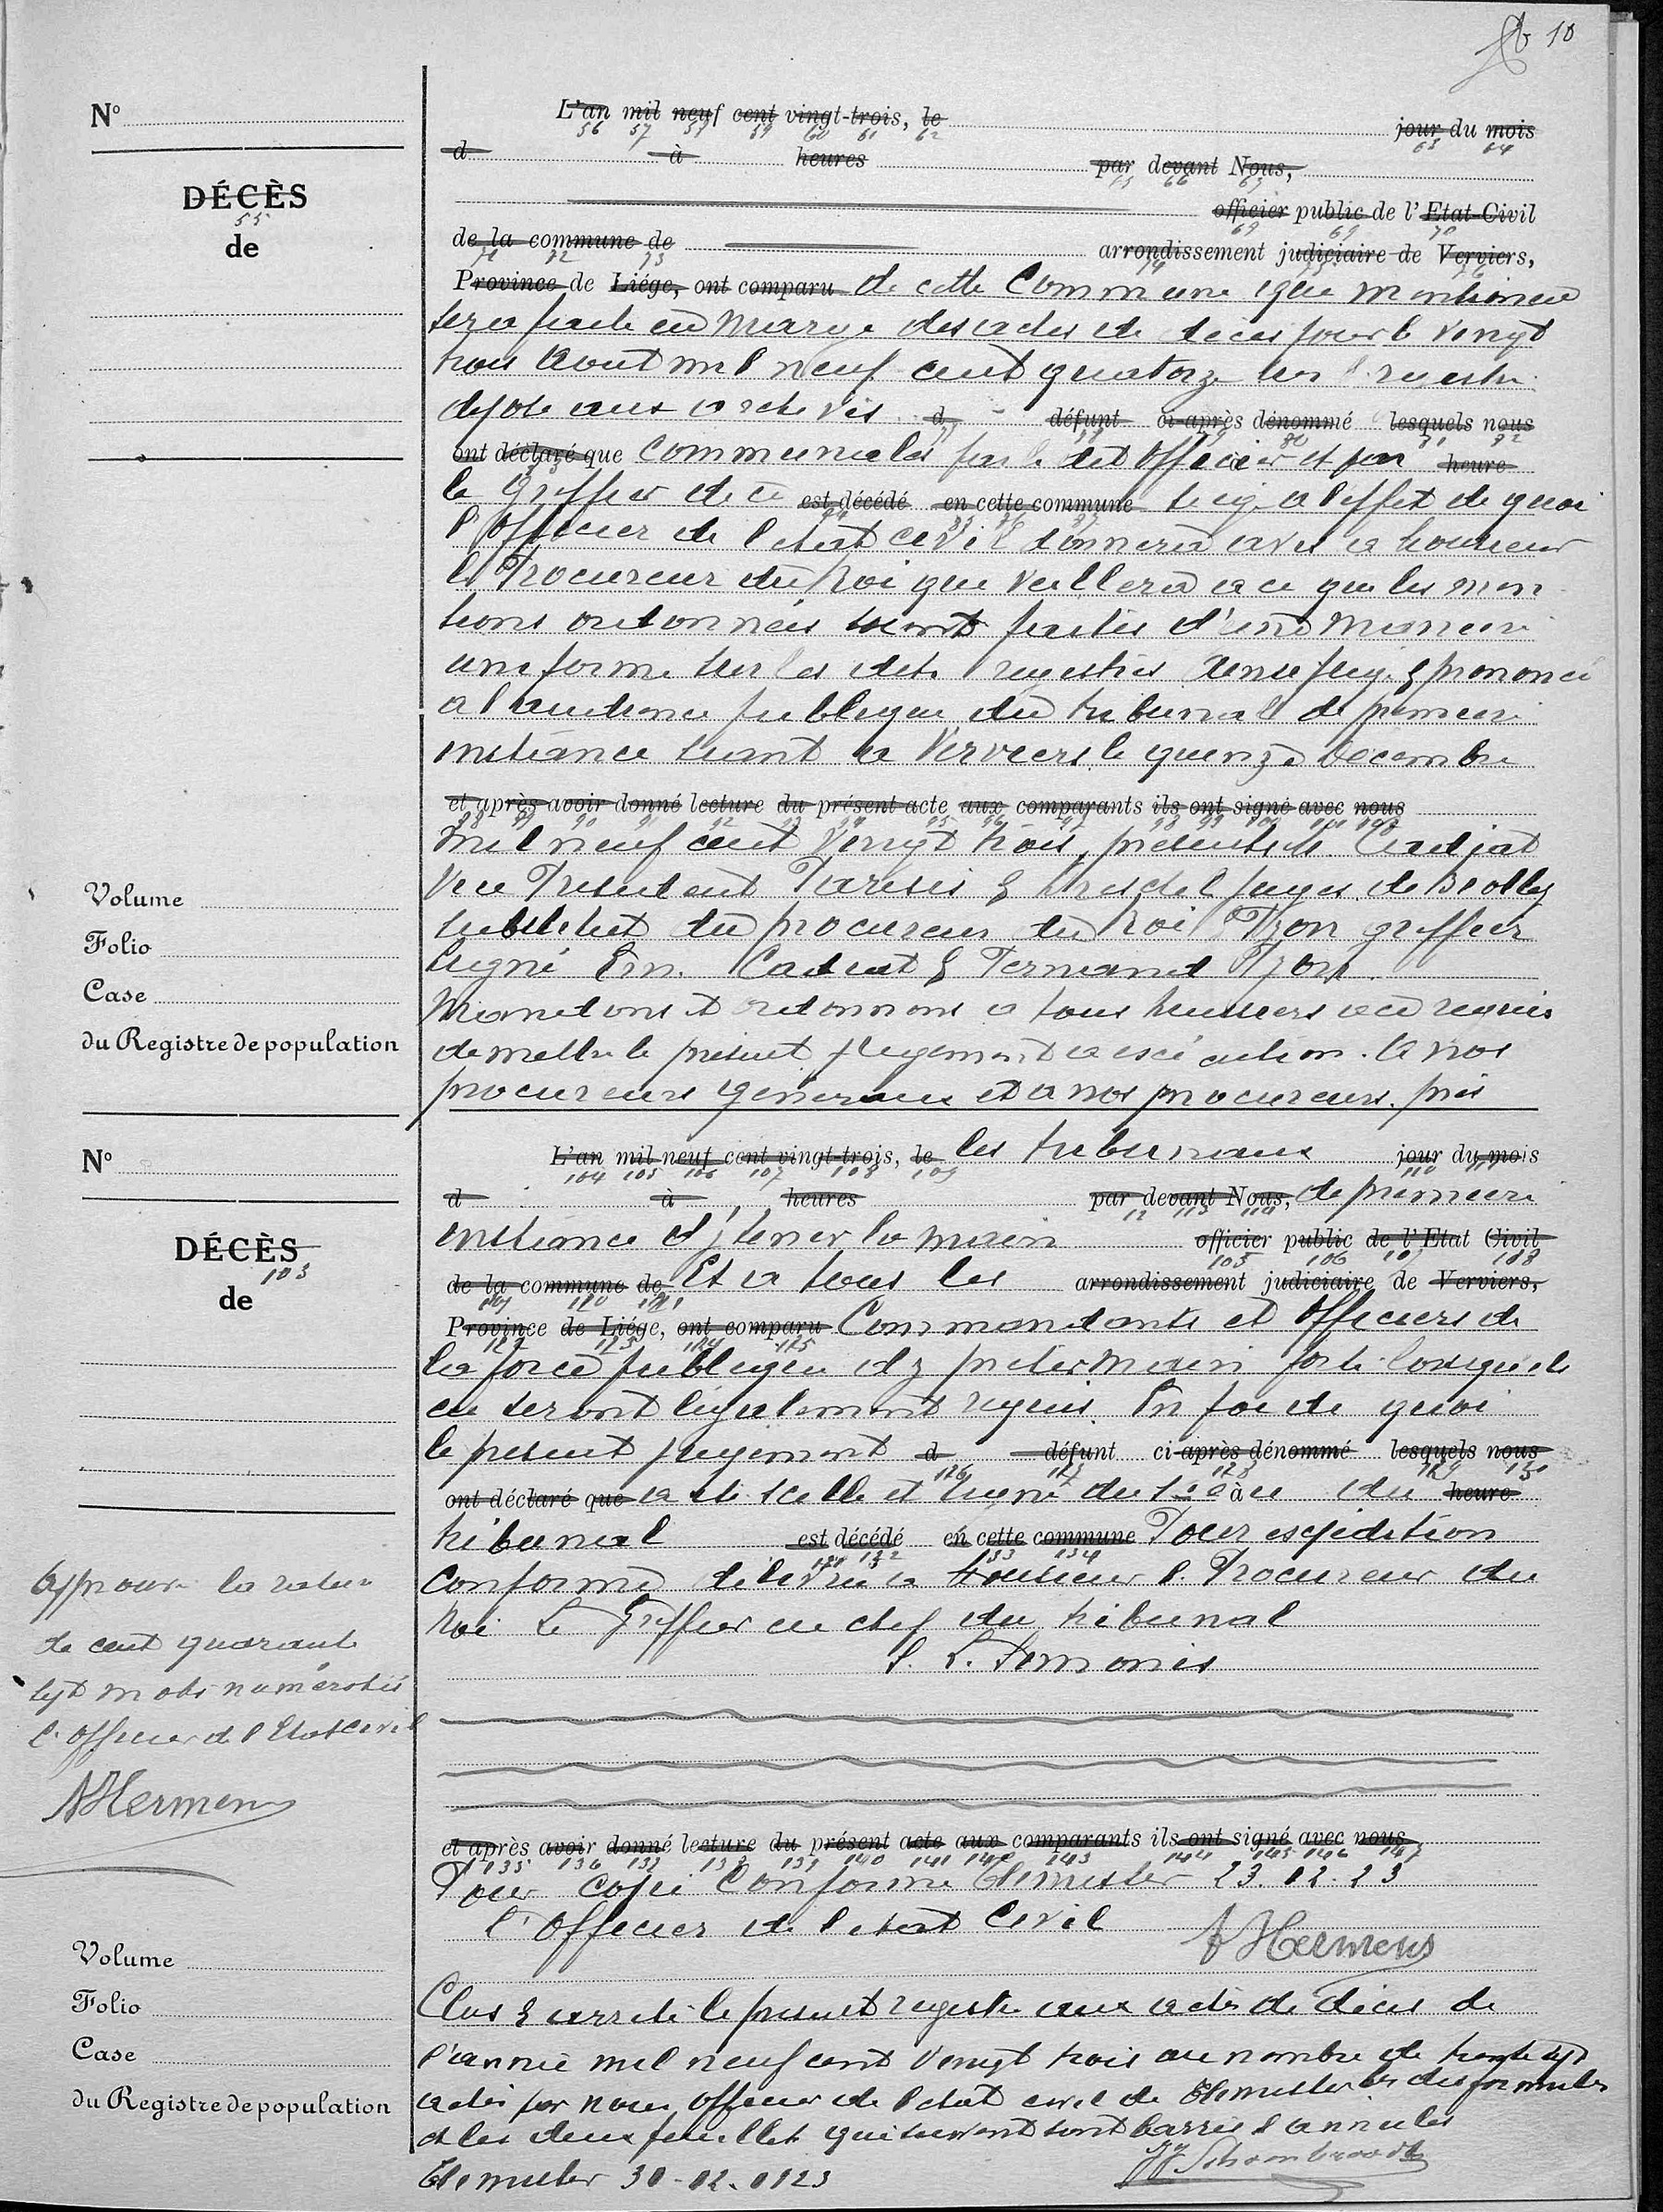 10
L'an mil neuf cent vingt-trois, le jour du mois
56 57 58 59 60 61 62 63 64
d à heures par devant Nous,
65 66 67
officier public de l'Etat-Civil
68 69 70
de la commune de arrondissement judiciaire de Verviers,
71 72 73 74 75 76
Province de Liége, ont comparu de cette Commune que mention
sera faite en marge des actes de décès pour le vingt
trois Aout mil neuf cent quatorze sur l registre
déposé aux archives d défunt ci-après dénommé lesquels nous
ont déclaré que communales par le dit Officier et par heure
le Greffier de ce est décédé en cette commune siège a l'effet de quoi
l'Officier de l'etat civil donnera avis a Monsieur
le Procureur du Roi qui veillera a ce que les men
tions ordonnées soient faites d'une maniere
uniforme sur les dits registres Ainsi jugé & prononcé
a l'audience publique du tribunal de premiere
instance séant a Verviers le quinze Décembre
et après avoir donné lecture du présent acte aux comparants ils ont signé avec nous
mil neuf cent vingt trois, présents
Vice President & juges de
substitut du procureur du Roi & Tzon greffier
signé Ern. & Fernand Tzon.
Mandons et ordonnons a tous huissiers a ce requis
de mettre le présent jugement a exécution. A nos
procureurs généraux et a nos procureurs près
N°
DÉCÈS
55
de
Volume
Folio
Case
du Registre de population
L'an mil neuf cent vingt-trois, le les tribunaux jour du mois
104 105 106 107 108 109 110
d à heures par devant Nous, de premiere
12 113 114
instance d'y tenir la main officier public de l'Etat Civil
105 106 107 108
de la commune de Et a tous les arrondissement judiciaire de Verviers,
120 121
Province de Liége, ont comparu Commandants et Officiers de
122 123 124 125
la force publique d'y preter main forte lorsquils
en seront légalement requis. En foi de quoi
le présent jugement d défunt ci-après dénommé lesquels nous
126 127 128 129 130
ont déclaré que a été scellé et signé du sceau à du heure
tribunal est décédé en cette commune Pour expédition
131 132 133 134
conforme délivrée a Monsieur l. Procureur du
Roi Le Greffier en chef du tribunal
S. L. Simonis
et après avoir donné lecture du présent acte aux comparants ils ont signé avec nous
135 136 137 138 139 140 141 142 143 144 145 146 147
Pour Copie Conforme Thimister 23.12.23
l'Officier de l'etat Civil A Hermens
Clos & arrêté le présent registre aux actes de décès de
l'année mil neuf cent vingt trois au nombre de trente sept
actes par nous officier de l'etat civil de Thimister les dix formules
et les deux feuillets qui suivent sont barrés & annulés
Thimister 30-12.1923 Schoonbroodt
N°
DÉCÈS
103
de
Approuvé la rature
de cent quarante
sept mots numérotés
l'Officier de l'Etat Civil
A Hermens
Volume
Folio
Case
du Registre de population